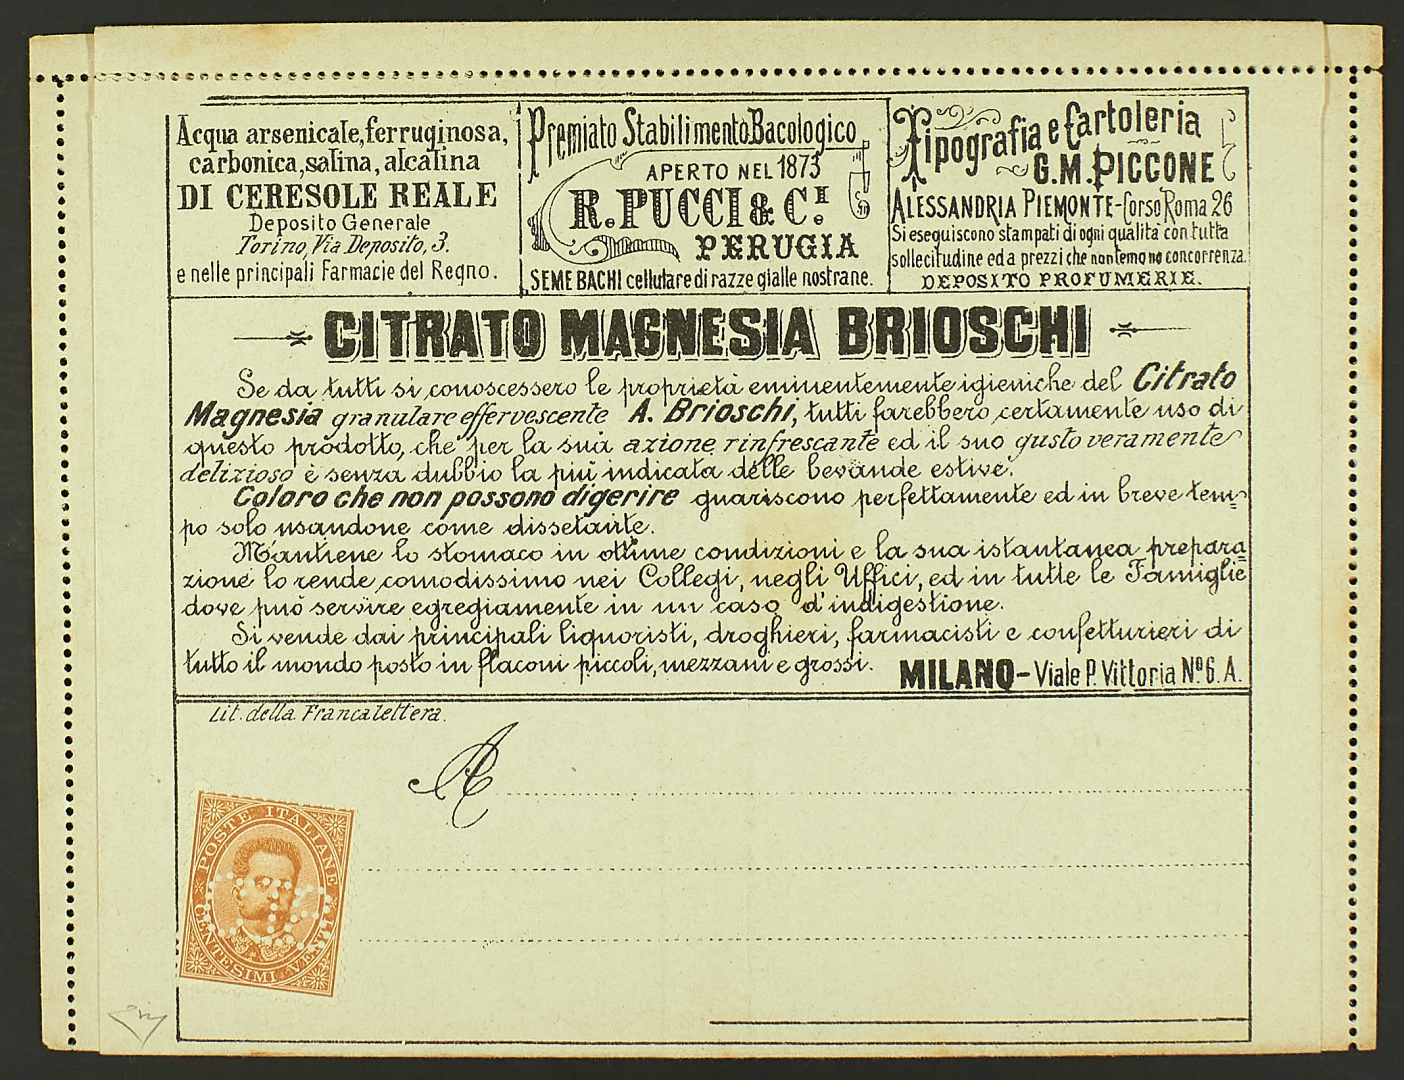 Acqua arsenicale, ferruginosa,
carbonica, salina, alcalina
DI CERESOLE REALE
Deposito Generale
Torino, Via Deposito, 3.
e nelle principali Farmacie del Regno.
Premiato Stabilimento Bacologico
APERTO NEL 1873
R. PUCCI & C.I
PERUGIA
SEME BACHI cellulare di razze gialle nostrane.
Tipografia e Cartoleria
G. M. PICCONE
ALESSANDRIA PIEMONTE - Corso Roma 26
Si eseguiscono stampati di ogni qualità con tutta
sollecitudine ed a prezzi che non temono concorrenza.
DEPOSITO PROFUMERIE.
CITRATO MAGNESIA BRIOSCHI
Se da tutti si conoscessero le proprietà eminentemente igieniche del Citrato
Magnesia granulare effervescente A. Brioschi, tutti farebbero certamente uso di
questo prodotto, che per la sua azione rinfrescante ed il suo gusto veramente
delizioso è senza dubbio la più indicata delle bevande estive.
Coloro che non possono digerire guariscono perfettamente ed in breve tem=
po solo usandone come dissetante.
Mantiene lo stomaco in ottime condizioni e la sua istantanea prepara=
zione lo rende comodissimo nei Collegi, negli Uffici, ed in tutte le Famiglie
dove può servire egregiamente in un caso d'indigestione.
Si vende dai principali liquoristi, droghieri, farmacisti e confetturieri di
tutto il mondo posto in flaconi piccoli, mezzani e grossi. MILANO - Viale P. Vittoria No 6. A.
Lit. della Francalettera.
A
POSTE ITALIANE
CENTESIMI VENTI